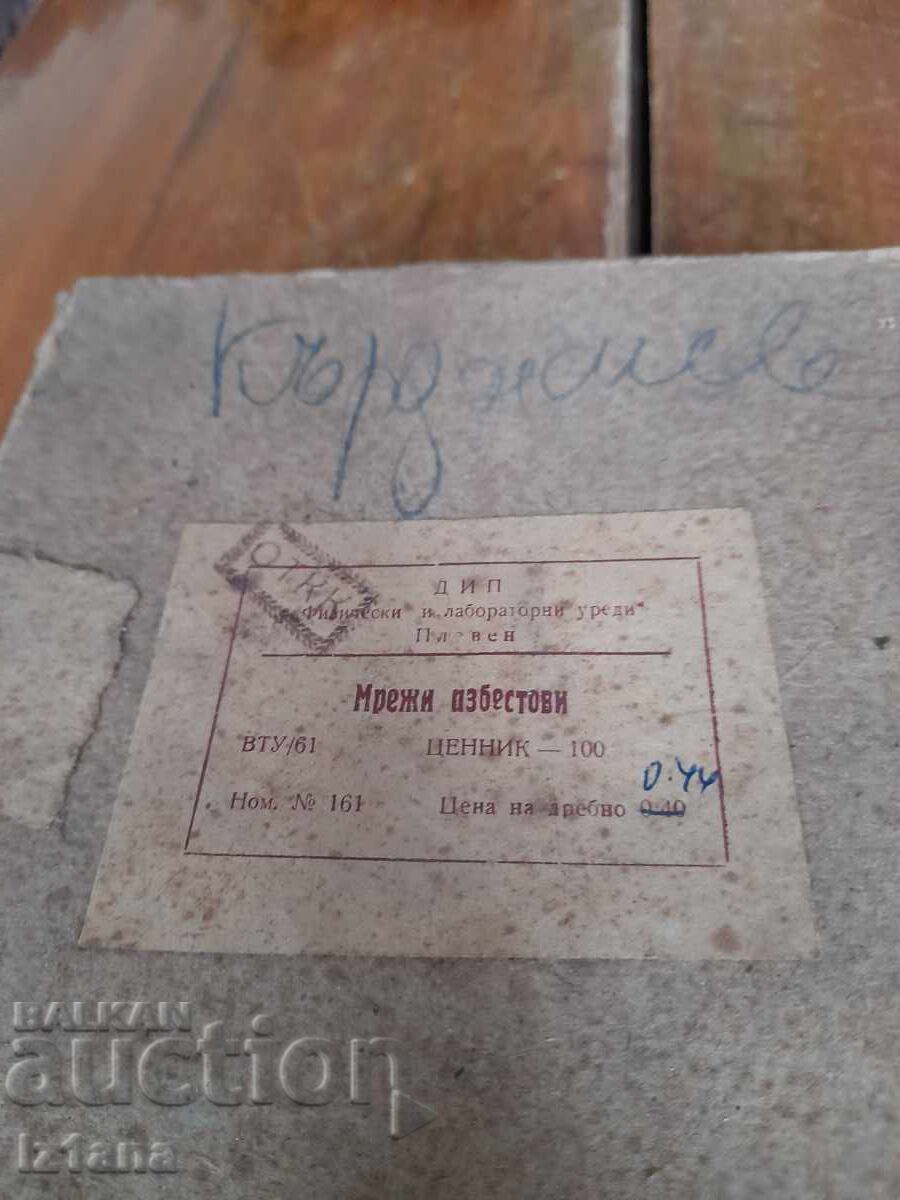 ОТКК
ДИП
„Физически и лабораторни уреди"
Плевен
Мрежи азбестови
ВТУ/61 ЦЕННИК — 100
0.44
Ном. № 161 Цена на дребно 0·40
BALKAN
auction
iz1ana